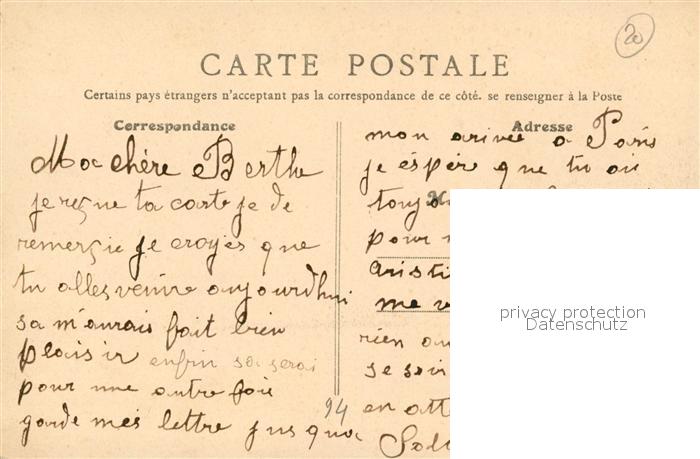 20
CARTE POSTALE
Certains pays étrangers n'acceptant pas la correspondance de ce côté. se renseigner à la Poste
Correspondance
Adresse
Ma chère Berthe
je reçue ta carte je de
remerçie je croyés que
tu alles venire aujourd'hui
sa m'aurais fait bien
plaisir enfin sa serai
pour une autre fois
garde mes lettre jusqua
94
mon arivée a Paris
je éspér que tu ai
toujo
pour
aristi
me v
rien au
se soir
en att
Sol
privacy protection
Datenschutz